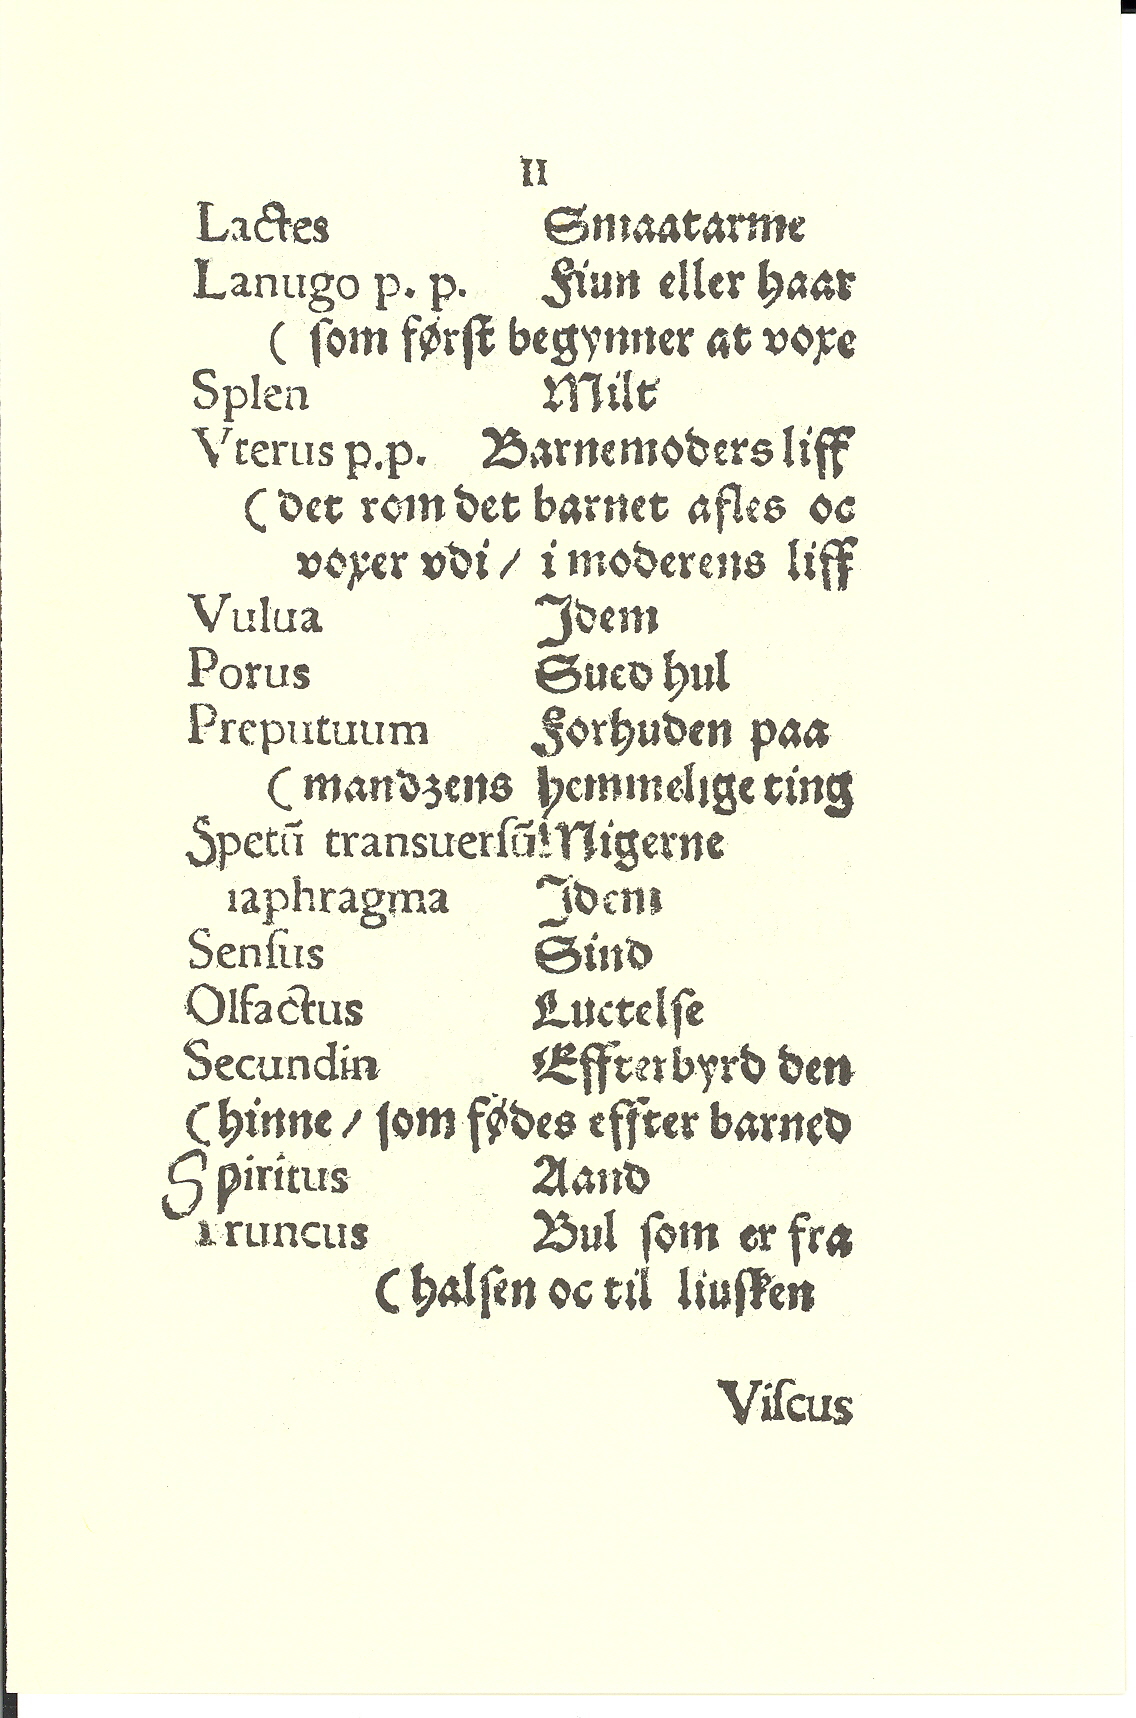 II
Lactes Smaatarme
Lanugo p. p. Fiun eller haar
( som først begynner at voxe
Splen Milt
Vterus p.p. Barnemoders liff
(det rom det barnet afles oc
voxer vdi / i moderens liff
Vulua Idem
Porus Sued hul
Preputuum Forhuden paa
(mandzens hemmelige ting
Spetū transuersū! Nigerne
iaphragma Idem
Sensus Sind
Olfactus Luctelse
Secundin Effterbyrd den
(hinne / som fødes effter barned
Spiritus Aand
Truncus Bul som er fra
(halsen oc til liusken
Viscus